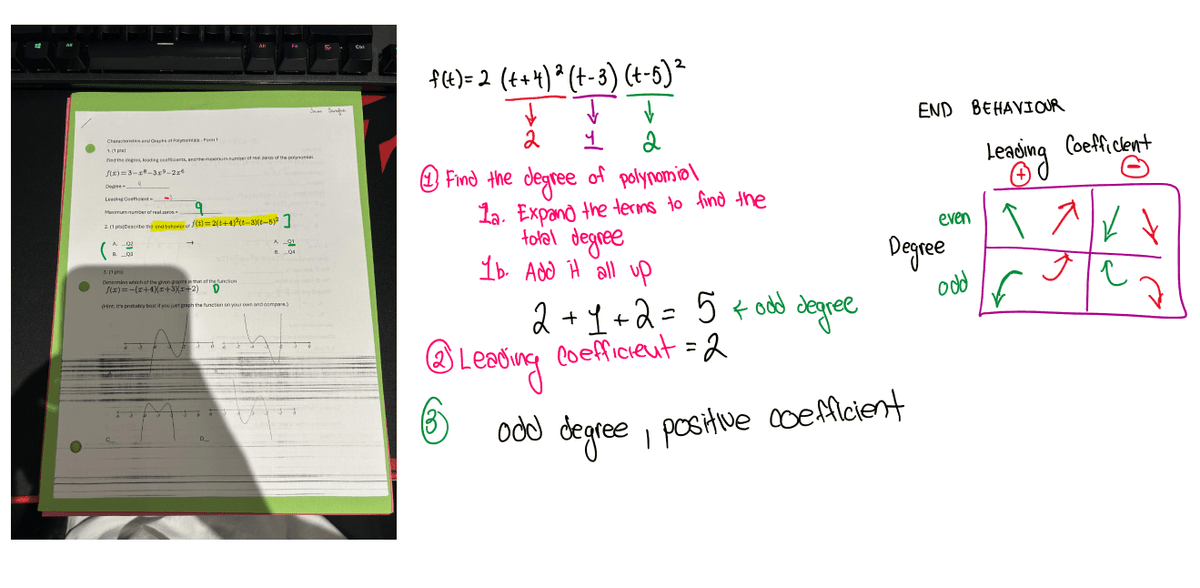 Alt
Alt
Fn
Ctrl
Characteristics and Graphs of Polynomials - Form 1
1. (1 pts)
Find the degree, leading coefficients, and the maximum number of real zeros of the polynomial.
f(x)=3−x⁸−3x⁹−2x⁶
Degree =
Leading Coefficient =
Maximum number of real zeros =
9
2. (1 pts)Describe the end behavior of f(t)=2(t+4)²(t−3)(t−5)² ]
( A. Q2 → A. Q1
B. Q3 B. Q4
3. (1 pts)
Determine which of the given graphs is that of the function
f(x)=−(x+4)(x+3)(x+2) D
(Hint: It's probably best if you just graph the function on your own and compare.)
C.
D.
f(t)= 2 (t+4)² (t-3) (t-5)²
2 1 2
① Find the degree of polynomial
1a. Expand the terms to find the
total degree
1b. Add it all up
2 + 1 + 2 = 5 ← odd degree
② Leading Coefficient = 2
③ odd degree, positive coefficient
END BEHAVIOUR
Leading Coefficient
⊕ ⊖
even
Degree
odd